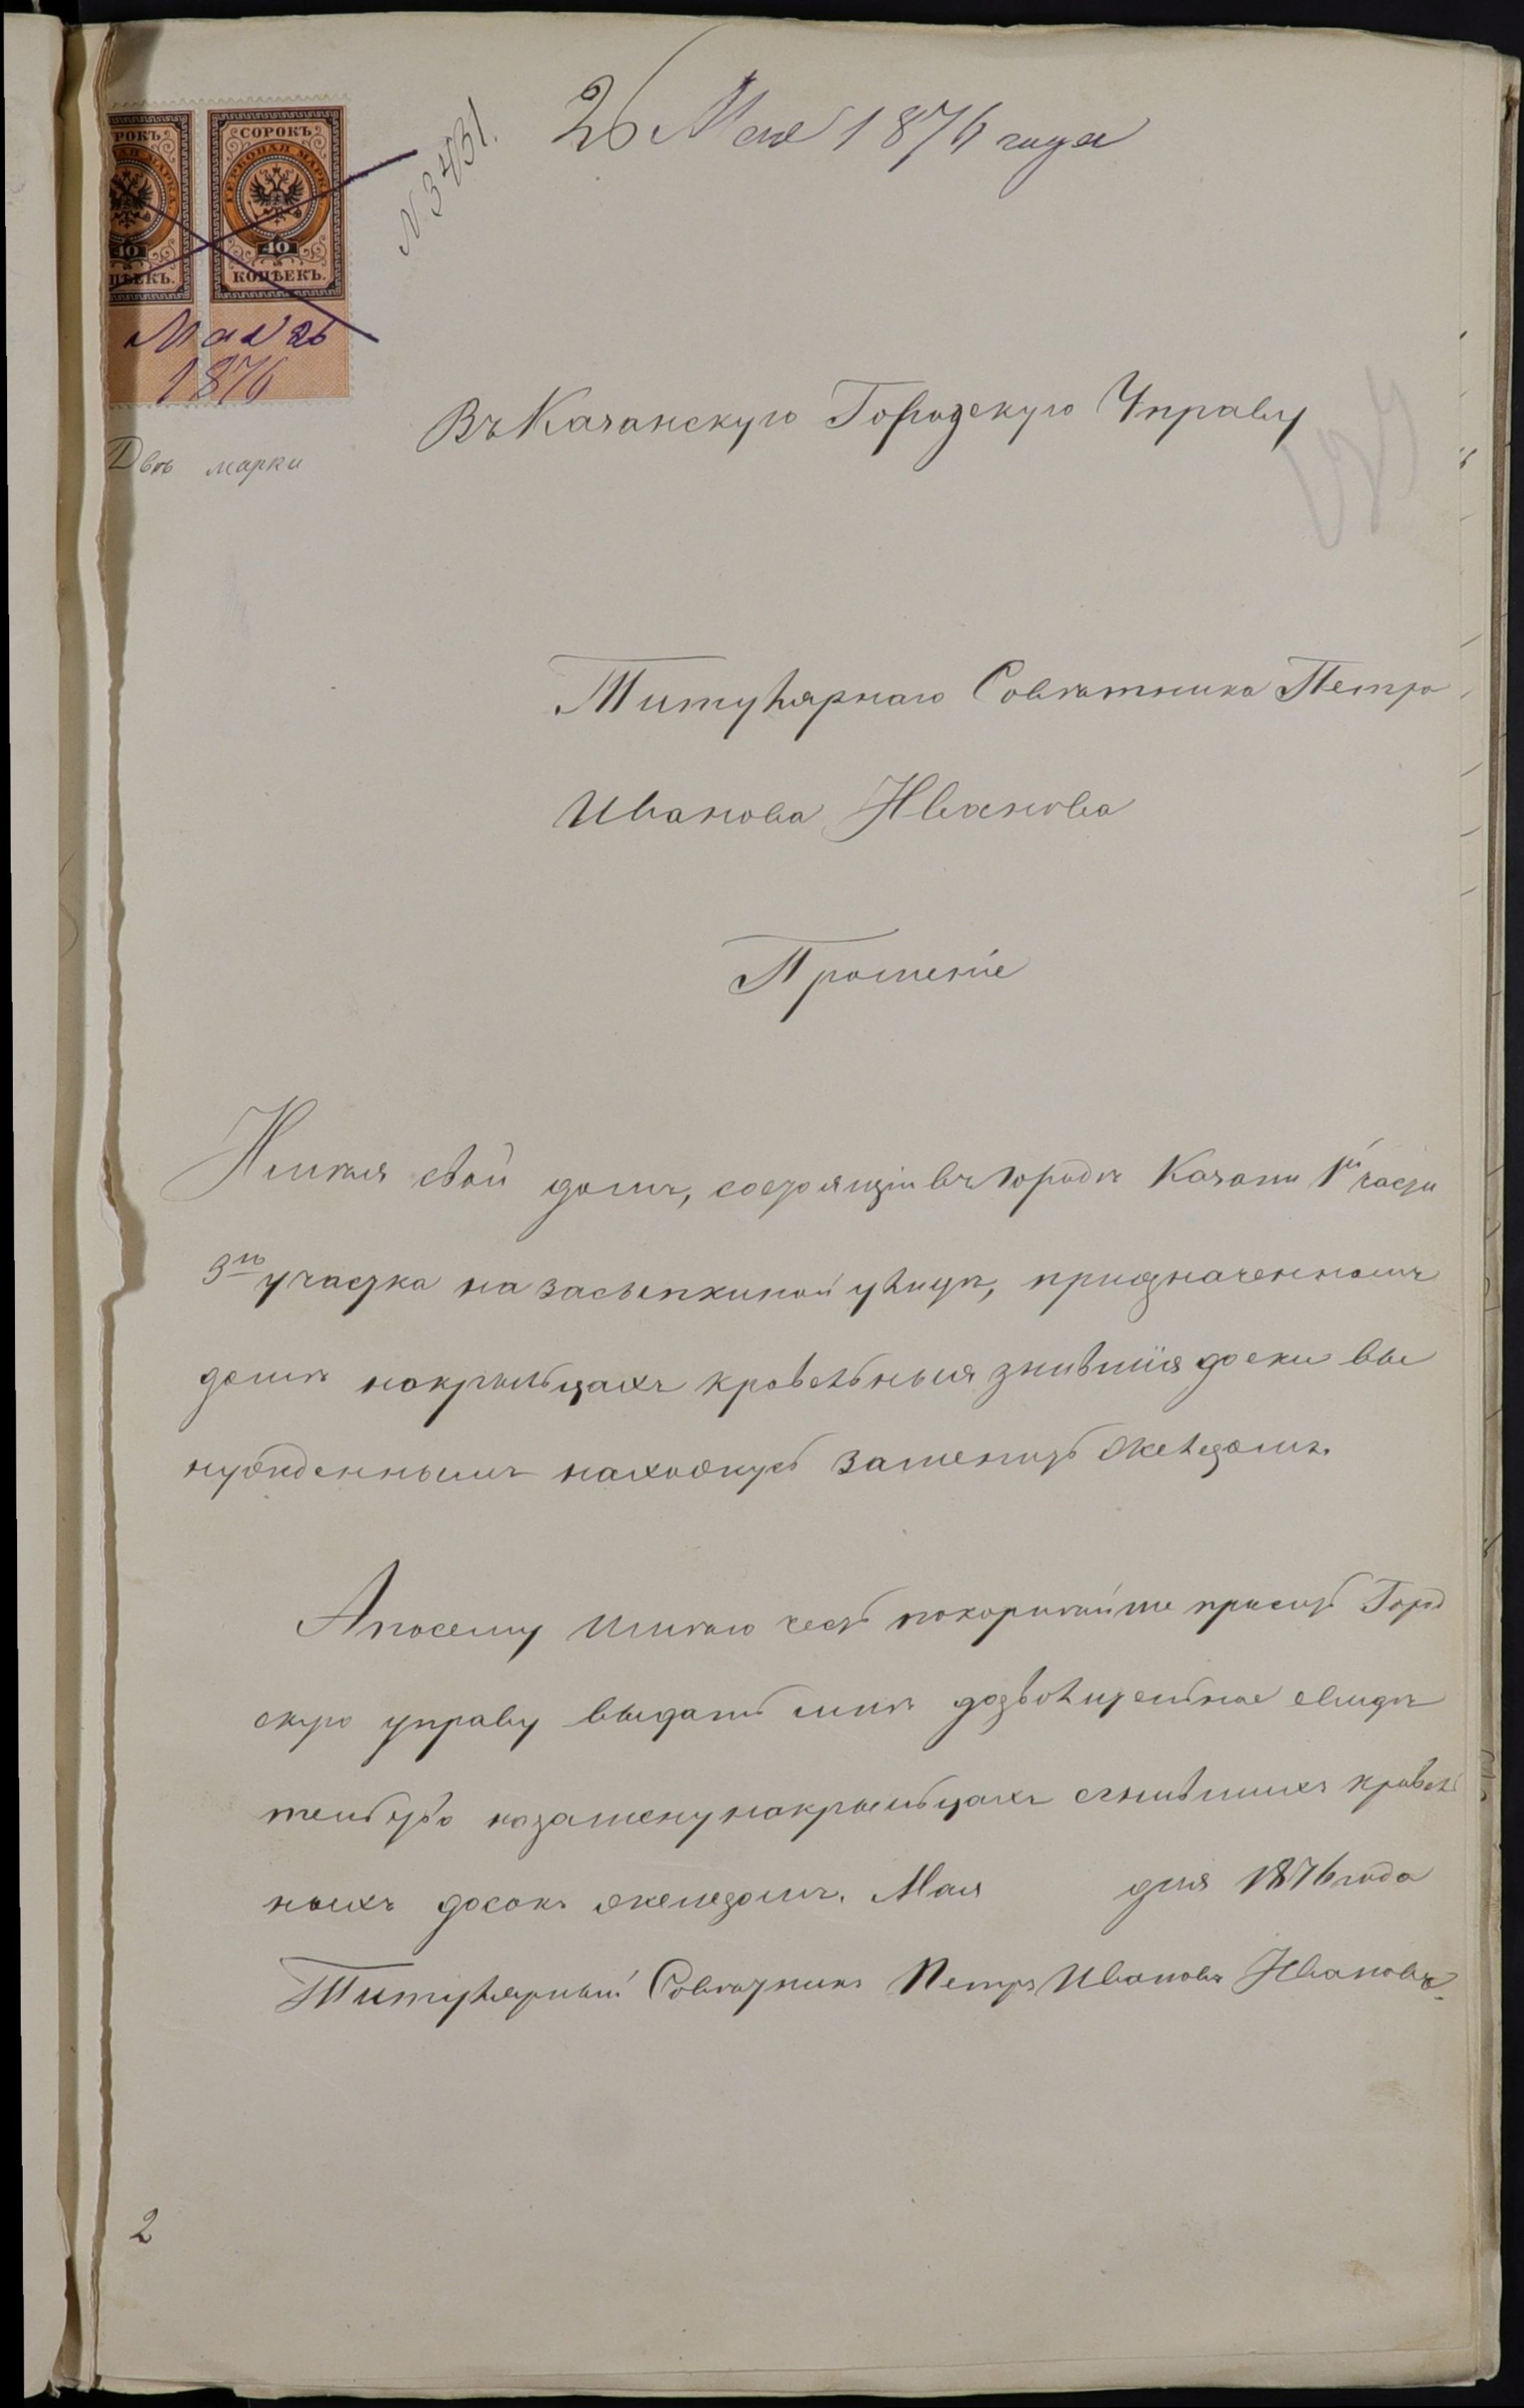 26 Мая 1876 года
N 3431.
СОРОКЪ
ГЕРБОВАЯ МАРКА
40
КОПѢЕКЪ.
Мая 26
1876
Двѣ марки
Въ Казанскую Городскую Управу
Титулярнаго Совѣтника Петра
Иванова Иванова
Прошеніе
Имѣя свой домъ, состоящій въ городѣ Казани 1й части
3го участка на Засыпкиной улицѣ, при означенномъ
домѣ на крыльцахъ кровельныя згнившія доски вы
нужденнымъ нахожусь заменить желѣзомъ.
А посему имѣю честь покорнѣйше просить Город
скую управу выдать мнѣ дозволительное свидѣ
тельство на замену на крыльцахъ сгнившихъ кровель
ныхъ досокъ железомъ. Мая дня 1876 года
Титулярный Совѣтникъ Петръ Ивановъ Ивановъ.
2